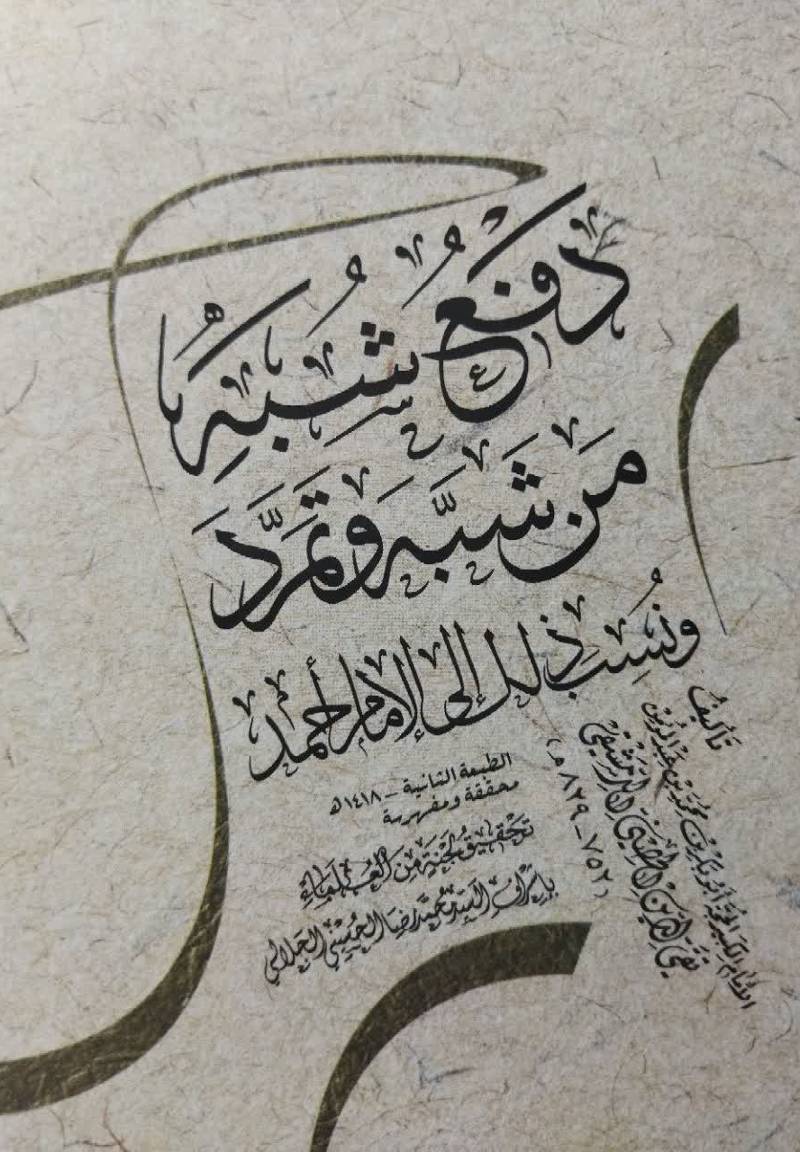 دفع شُبَهِ
مَن شَبَّه وتمَرَّدَ
ونُسِبَ ذلك إلى الإمام أحمد
تأليف
الإمام الكبير الحجة أبو بكر بن محمد بن عبد المؤمن
تقي الدين الحصني الدمشقي
(٧٥٢ - ٨٢٩ هـ)
الطبعة الثانية - ١٤١٨ هـ
محققة ومفهرسة
تحقيق لجنة من العلماء
بإشراف السيد محمد رضا الحسيني الجلالي